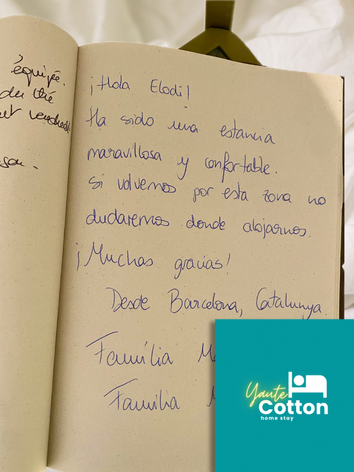 équipé.
du thé
¡Hola Elodi!
Ha sido una estancia
maravillosa y confortable.
si volvemos por esta zona no
dudaremos donde alojarnos.
¡Muchas gracias!
Desde Barcelona, Catalunya
Família
Familia
Yaute
Cotton
home stay